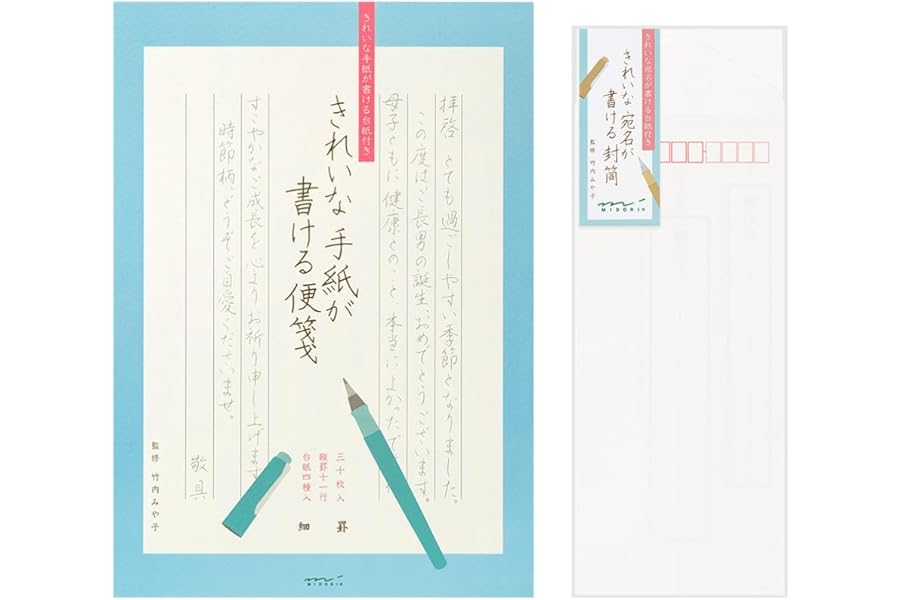 きれいな手紙が書ける台紙付き
拝啓 とても過ごしやすい季節となりました。
この度はご長男の誕生、おめでとうございます。
母子ともに健康とのこと、本当によかったです
きれいな 手紙が
書ける 便箋
すこやかなご成長を 心より お祈り申し上げます
時節柄、どうぞご自愛くださいませ。
敬具
三十枚入
縦罫十一行
台紙四種入
細罫
監修 竹内みや子
MIDORI
きれいな宛名が書ける台紙付き
きれいな 宛名が
書ける 封筒
監修 竹内みや子
MIDORI